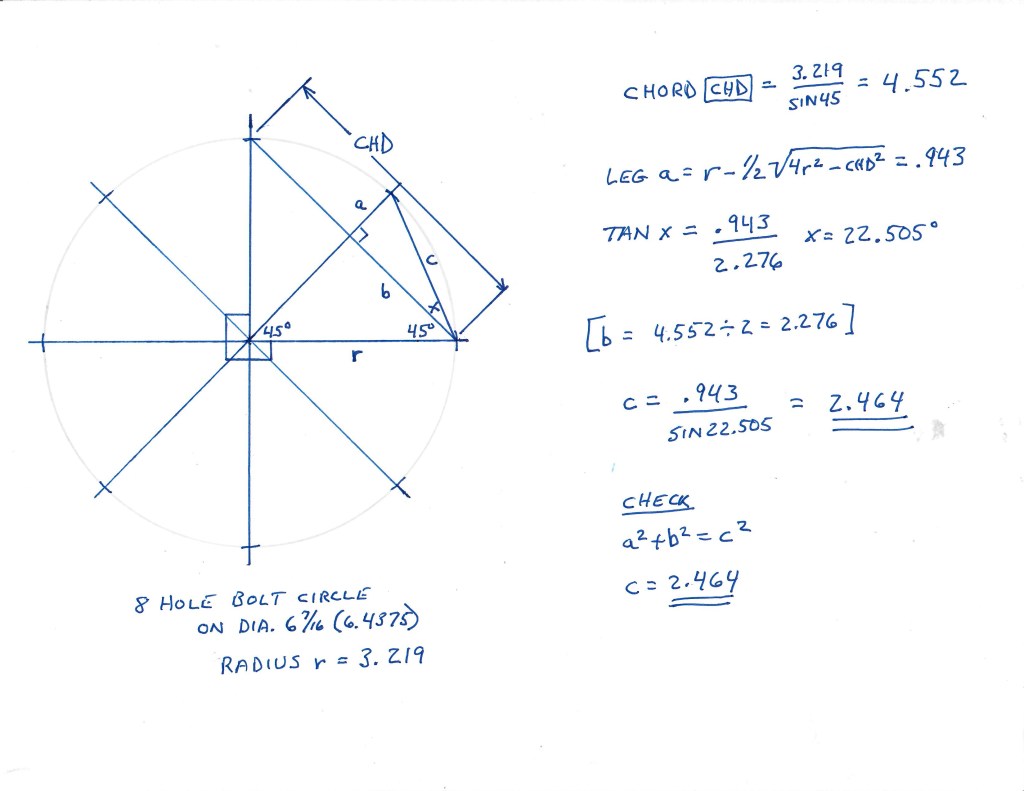 CHD
a
c
b
x
45°
45°
r
8 HOLE BOLT CIRCLE
ON DIA. 6 7/16 (6.4375)
RADIUS r = 3.219
CHORD CHD = 3.219 / SIN45 = 4.552
LEG a = r - 1/2 √4r² - CHD² = .943
TAN x = .943 / 2.276 x = 22.505°
[b = 4.552 ÷ 2 = 2.276]
c = .943 / SIN 22.505 = 2.464
CHECK
a² + b² = c²
c = 2.464